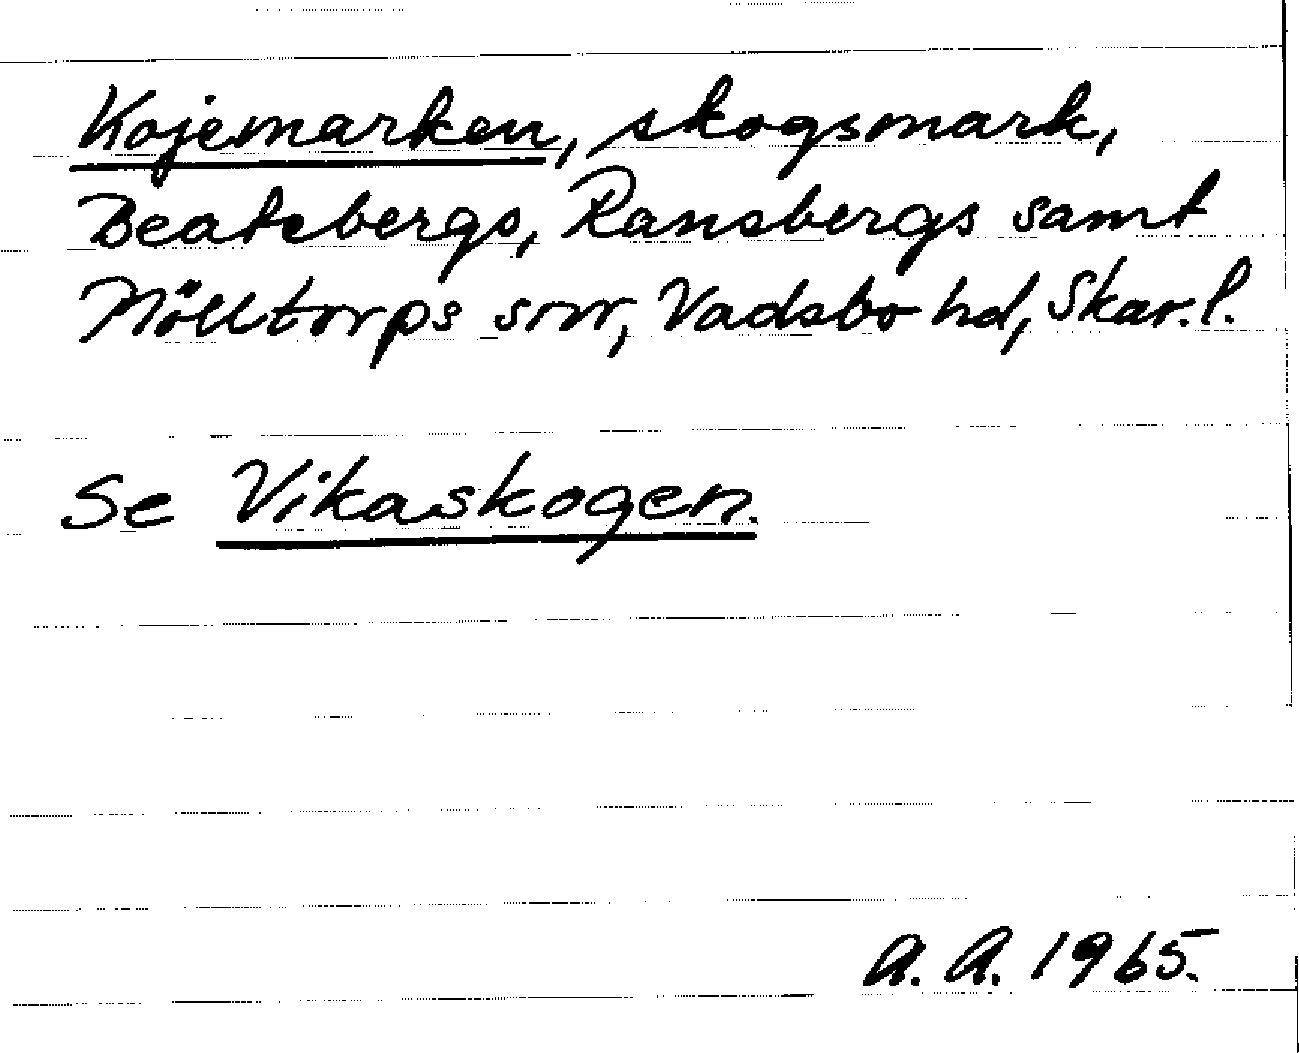 Kojemarken, skogsmark,
Beatebergs, Ransbergs samt
Mölltorps snr, Vadsbo hd, Skar.l.
Se Vikaskogen.
A.A. 1965.